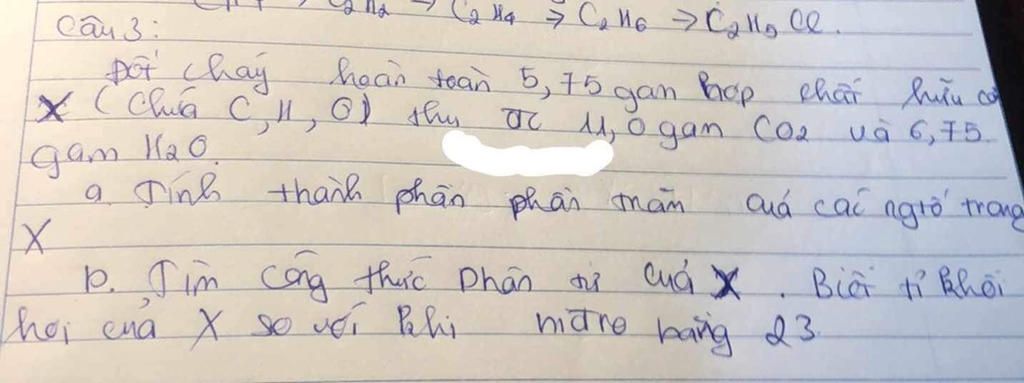 C₂H₂ → C₂H₄ → C₂H₆ → C₂H₅Cl.
Câu 3:
Đốt cháy hoàn toàn 5,75 gam hợp chất hữu cơ
X (Chứa C, H, O) thu đc 11,0 gam CO2 và 6,75
gam H2O.
a. Tính thành phần phần trăm của các ngtố trong
X
b. Tìm công thức phân tử của X. Biết tỉ khối
hơi của X so với khí hiđro bằng 23.